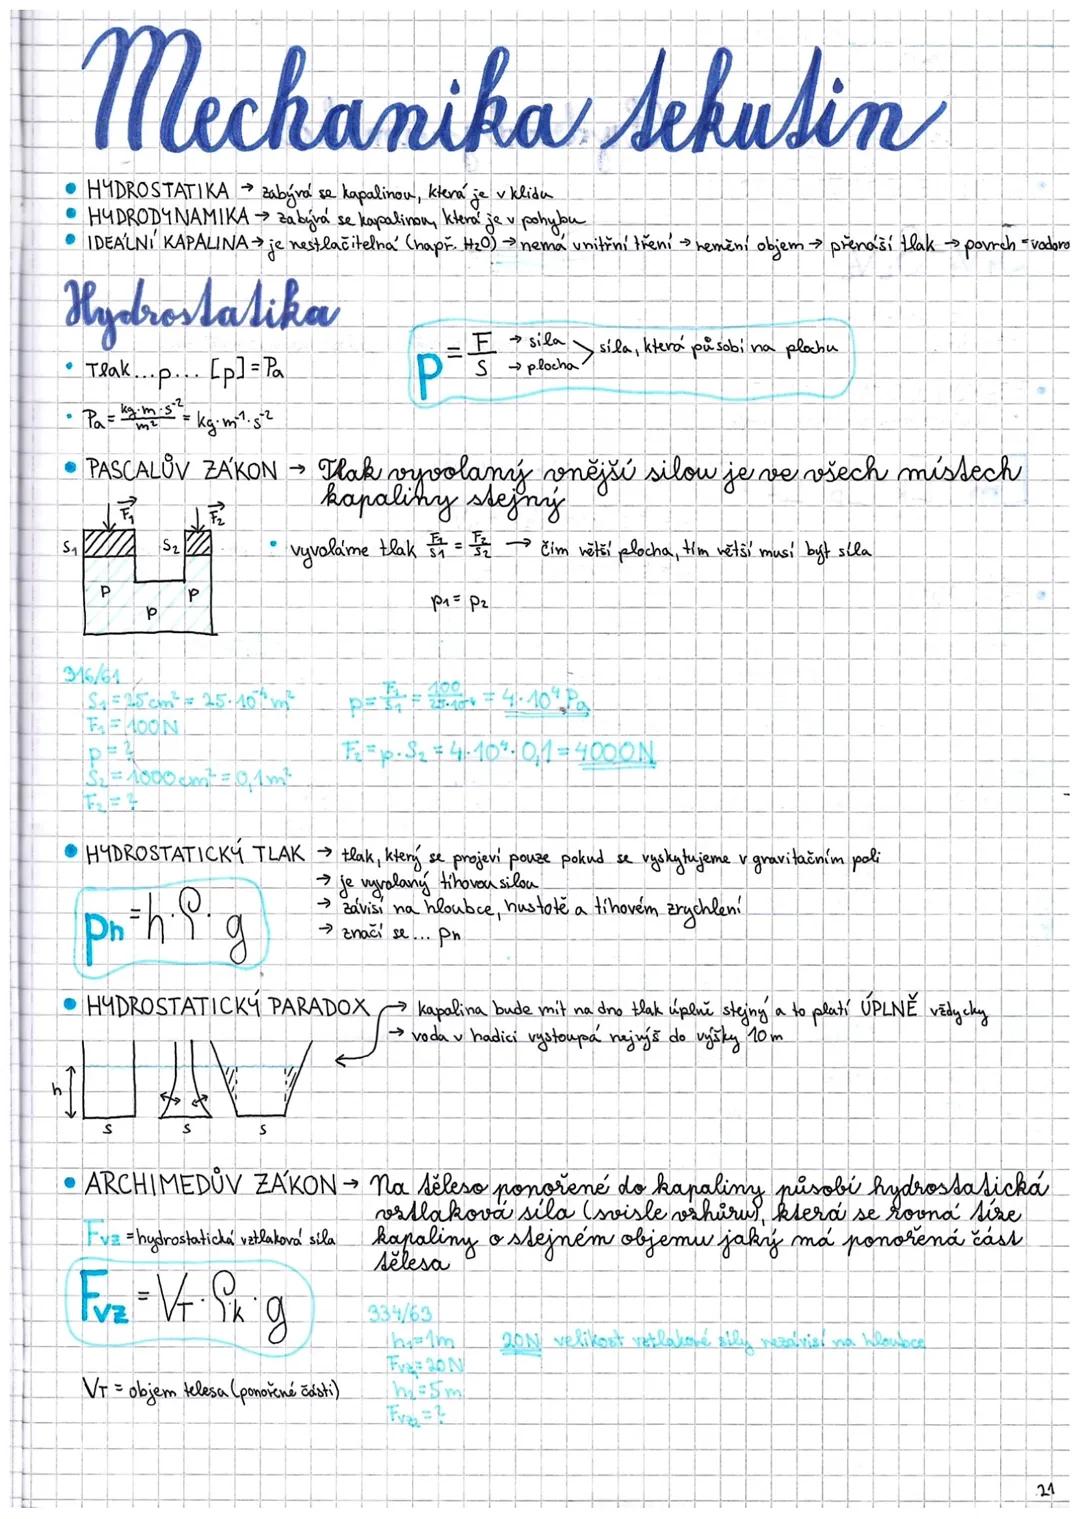 Mechanika tekutin
• HYDROSTATIKA → zabývá se kapalinou, která je v klidu
• HYDRODYNAMIKA → zabývá se kapalinou, která je v pohybu
• IDEÁLNÍ KAPALINA → je nestlačitelná (např. H₂O) → nemá vnitřní tření → nemění objem → přenáší tlak → povrch = vodoro
Hydrostatika
p = F/S → síla → plocha síla, která působí na plochu
• Tlak...p... [p] = Pa
• Pa = kg·m·s⁻²/m² = kg·m⁻¹·s⁻²
• PASCALŮV ZÁKON → Tlak vyvolaný vnější silou je ve všech místech
kapaliny stejný
F₁ F₂
S₁ S₂
p p p
• vyvoláme tlak F₁/S₁ = F₂/S₂ → čím větší plocha, tím větší musí být síla
p₁ = p₂
316/61
S₁ = 25 cm² = 25·10⁻⁴ m² p = F₁/S₁ = 100/25·10⁻⁴ = 4·10⁴ Pa
F₁ = 100N
p = ? F₂ = p·S₂ = 4·10⁴·0,1 = 4000N
S₂ = 1000 cm² = 0,1 m²
F₂ = ?
• HYDROSTATICKÝ TLAK → tlak, který se projeví pouze pokud se vyskytujeme v gravitačním poli
→ je vyvolaný tíhovou silou
→ závisí na hloubce, hustotě a tíhovém zrychlení
→ značí se... pₕ
pₕ = h·ρ·g
• HYDROSTATICKÝ PARADOX → kapalina bude mít na dno tlak úplně stejný a to platí ÚPLNĚ vždycky
→ voda v hadici vystoupá nejvýš do výšky 10 m
h
S S S
• ARCHIMEDŮV ZÁKON → Na těleso ponořené do kapaliny působí hydrostatická
vztlaková síla (svisle vzhůru), která se rovná tíze
Fvz = hydrostatická vztlaková síla kapaliny o stejném objemu jaký má ponořená část
tělesa
Fvz = VT·ρk·g
334/63
h₁ = 1m 20N velikost vztlakové síly nezávisí na hloubce
Fvz₁ = 20N
VT = objem telesa (ponořené části) h₂ = 5m
Fvz₂ = ?
21